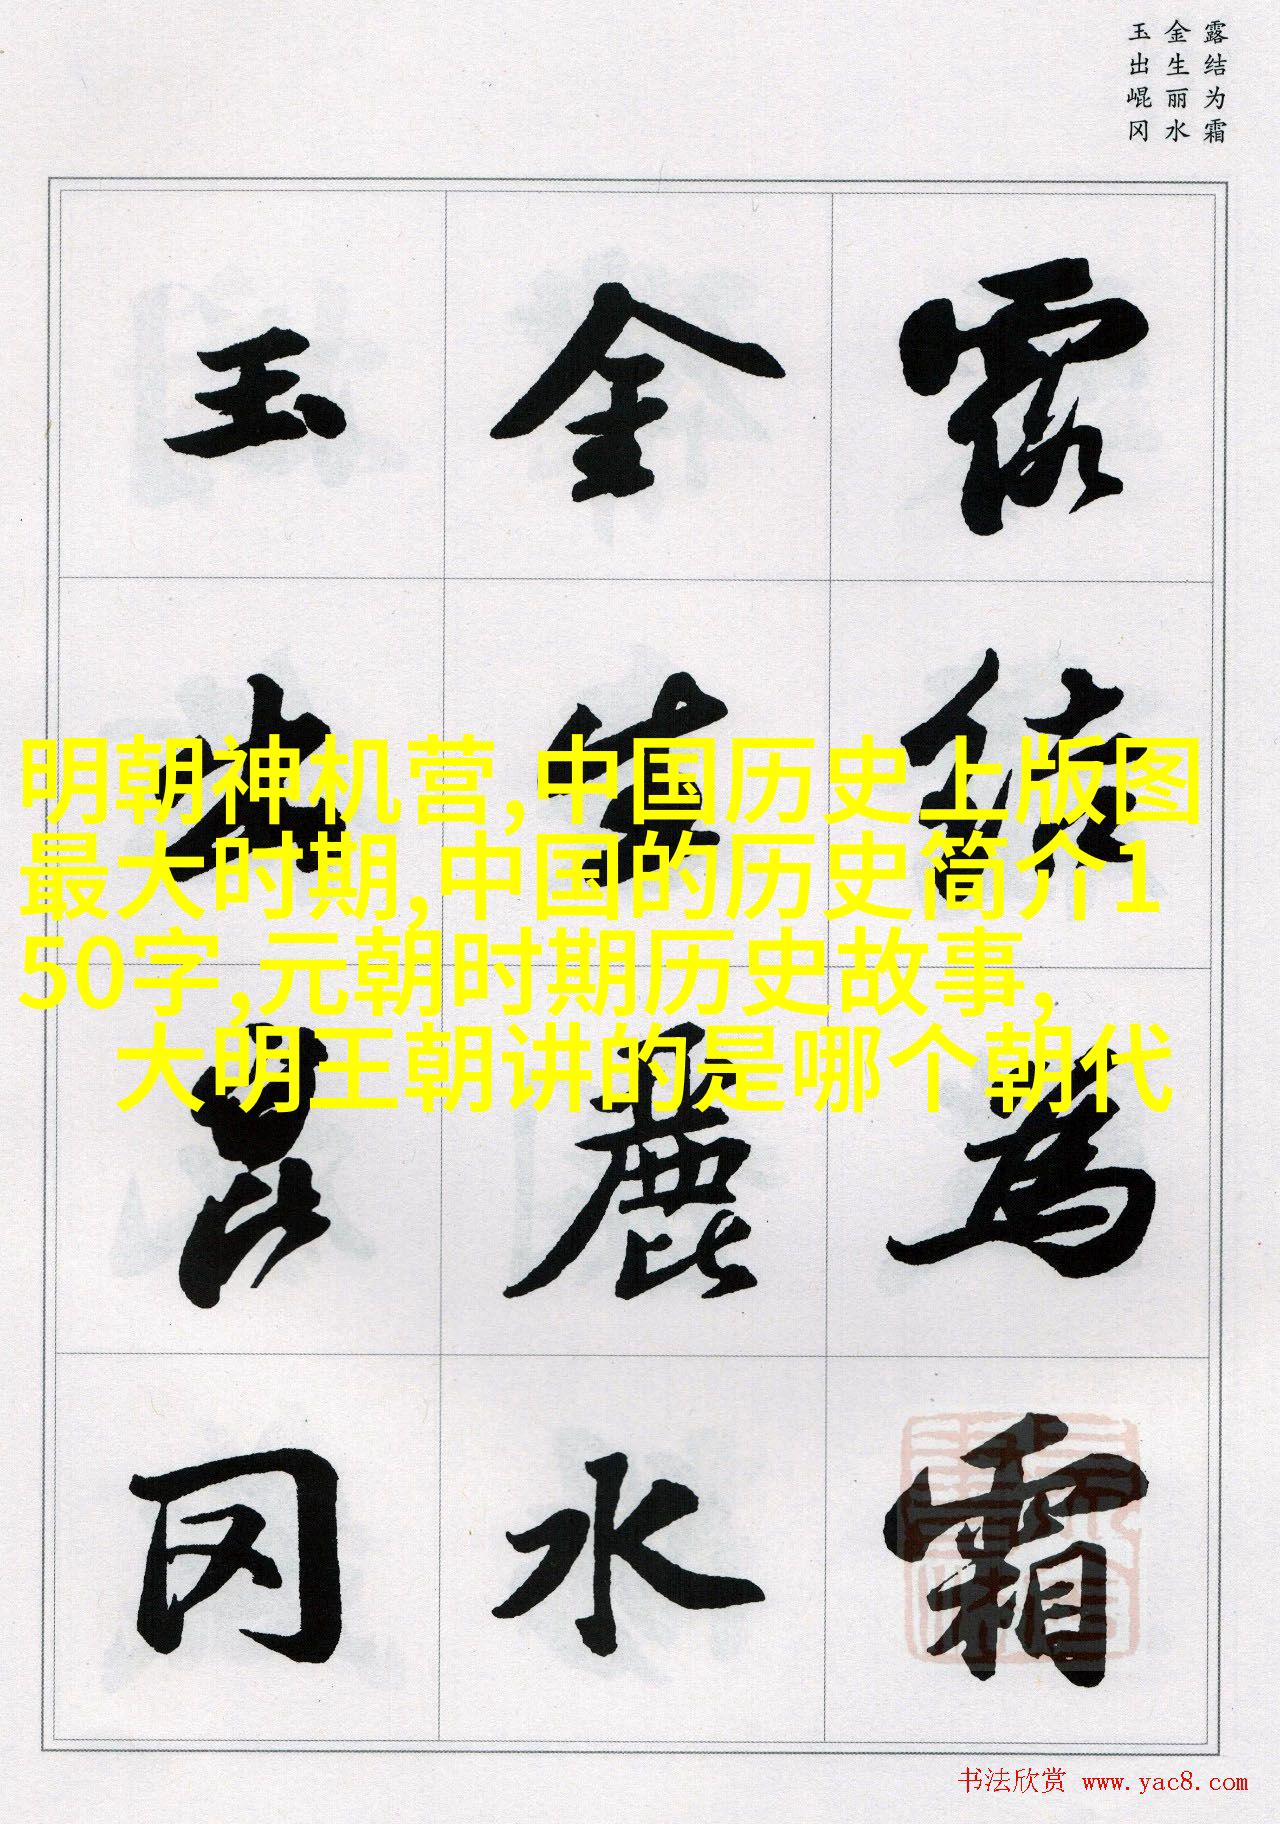 露结为霜
金生丽水
玉出崐冈
露结為霜
金生麗水
玉出崑冈
明朝神机营,中国历史上版图
最大时期,中国的历史简介1
50字,元朝时期历史故事,
大明王朝讲的是哪个朝代
书法欣赏 www.yac8.com